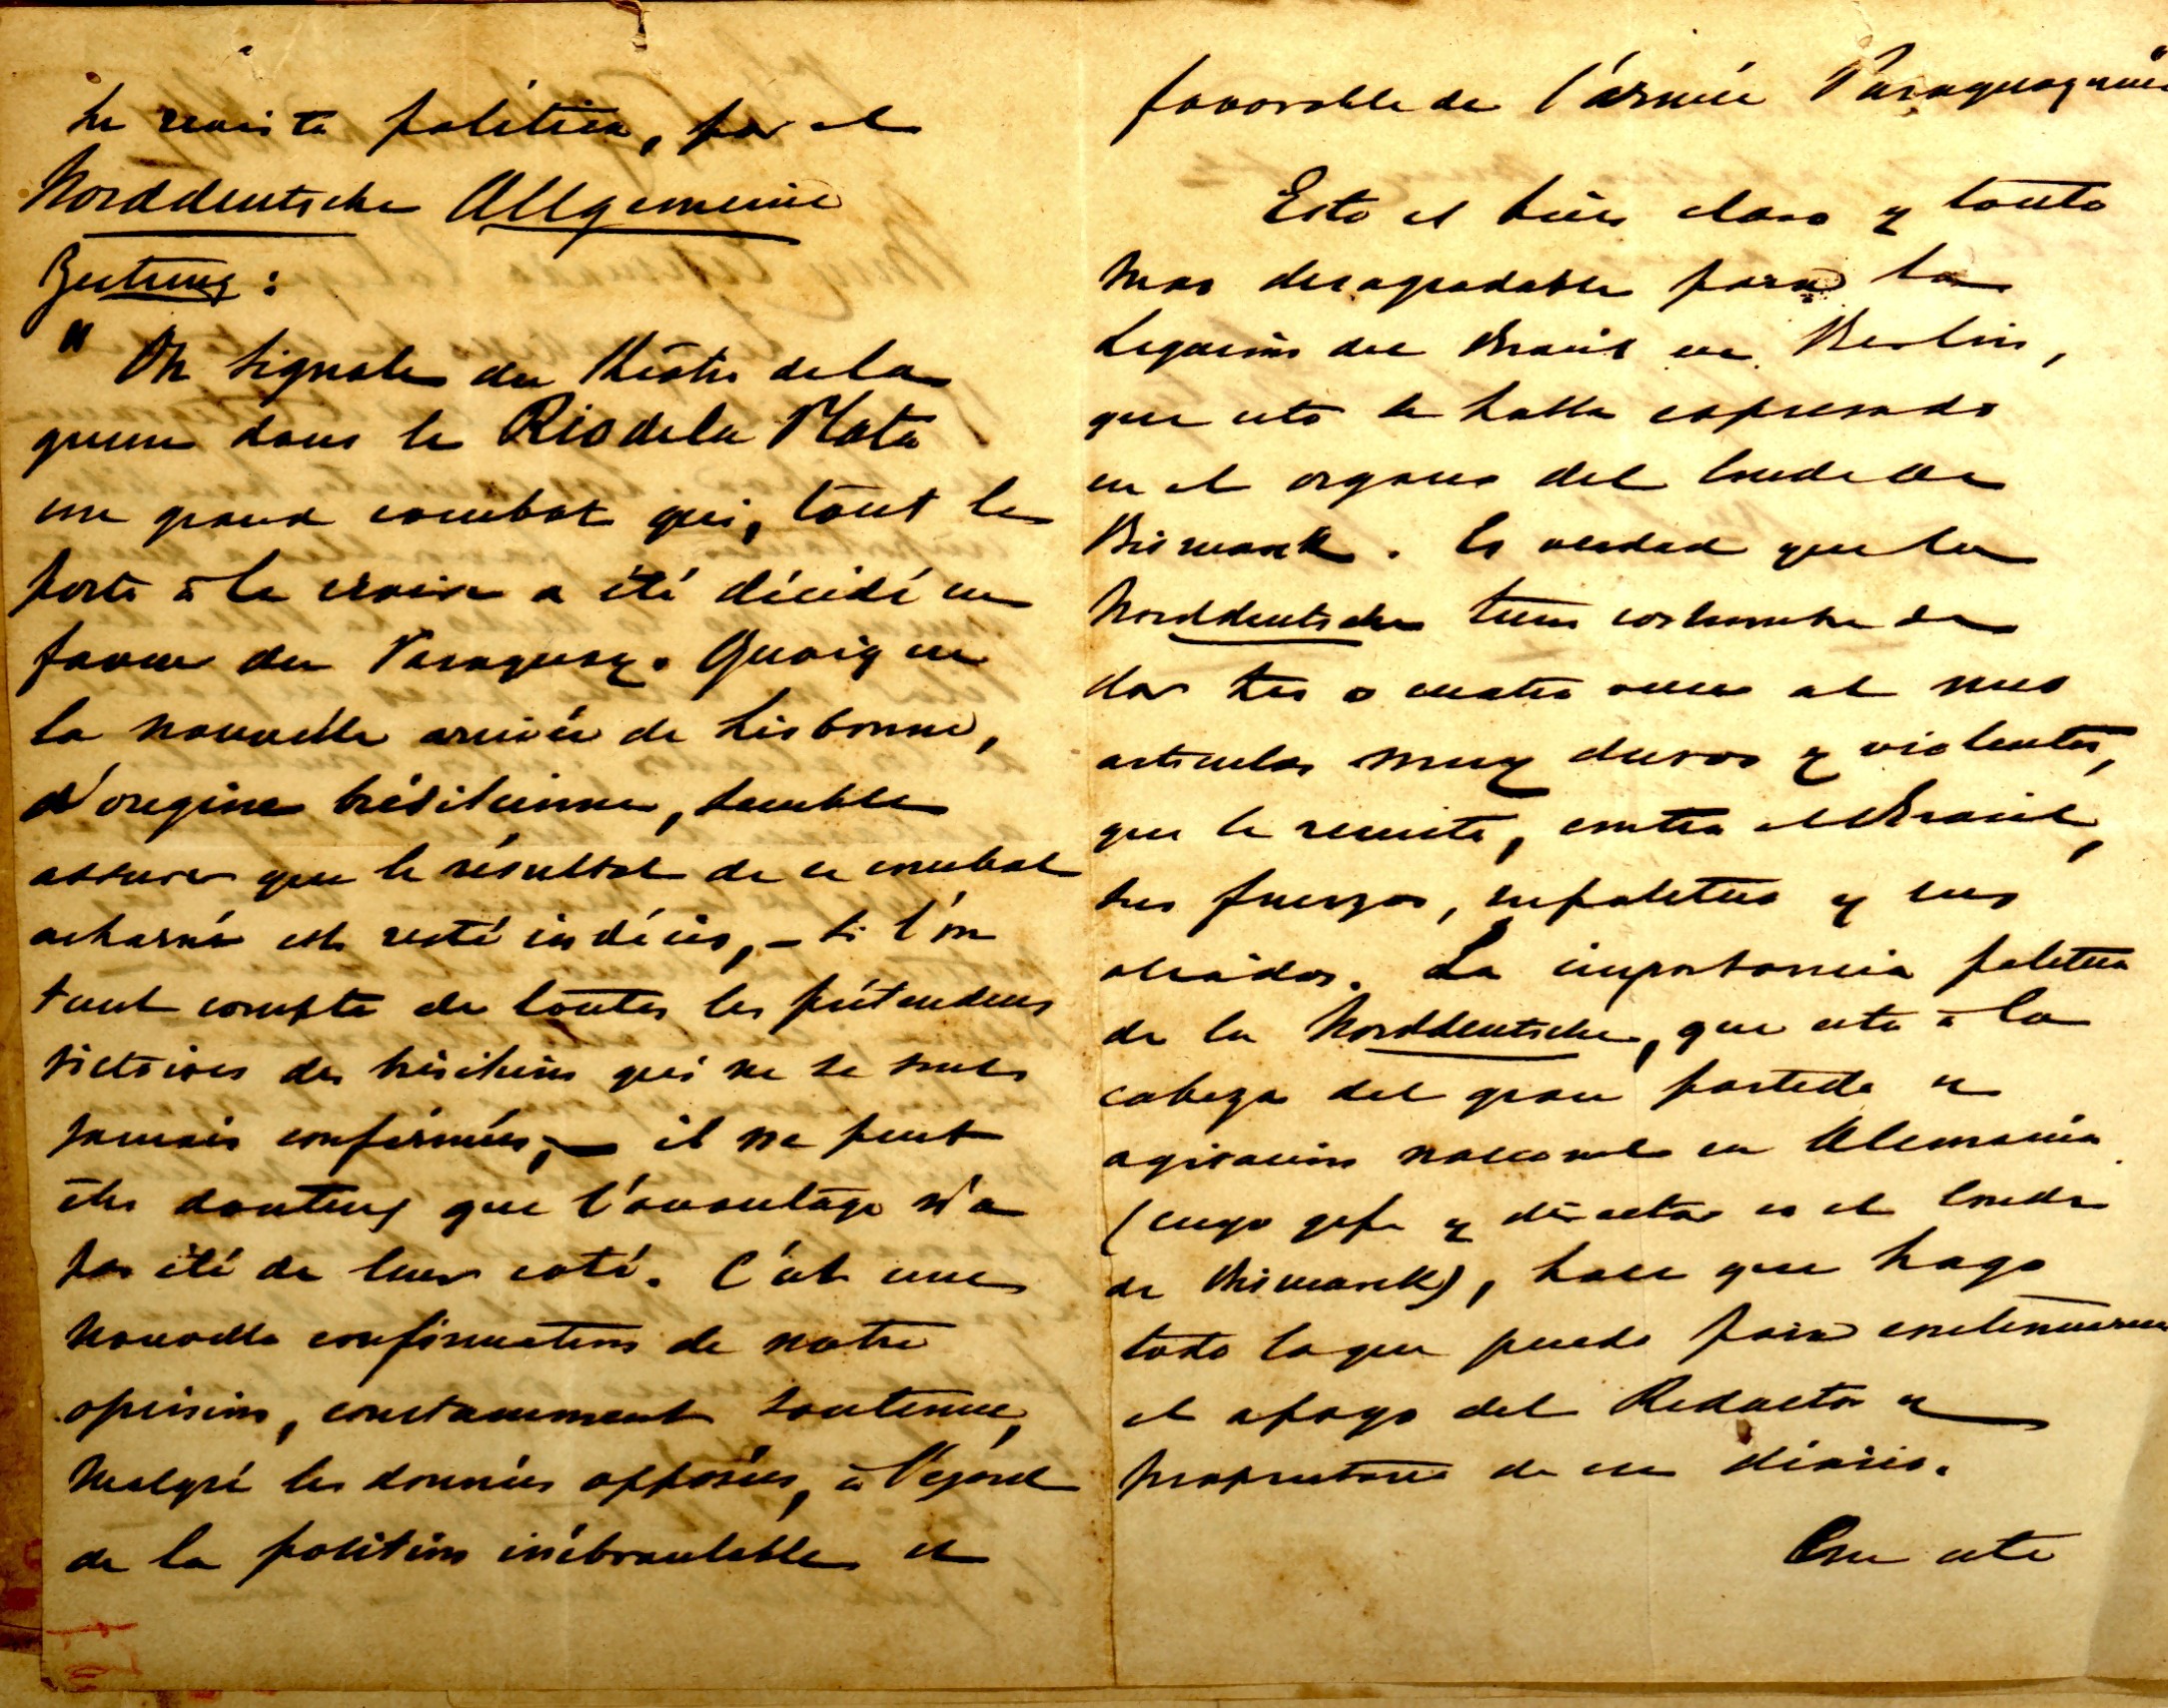 la revista politica, por el
Norddeutsche Allgemeine
Zeitung:
"On signale du théâtre de la
guerre dans le Rio de la Plata
un grand combat qui, tout le
porte à le croire a été décidé en
faveur du Paraguay. Quoique
la nouvelle arrivée de Lisbonne,
d'origine brésilienne, semble
assurer que le résultat de ce combat
acharné est resté indécis, – si l'on
tient compte de toutes les prétendues
victoires des brésiliens qui ne se sont
jamais confirmées, – il ne peut
être douteux que l'avantage n'a
pas été de leur coté. C'est une
nouvelle confirmation de notre
opinion, constamment soutenue,
malgré les données opposées, à l'égard
de la position inébranlable et
favorable de l'armée Paraguayenne"
Esto es bien claro y tanto
mas desagradable para la
Legacion del Brasil en Berlin,
que esto se halla espresado
en el organo del Conde de
Bismarck. Es verdad que la
Norddeutsche tiene costumbre de
dar tres o cuatro veces al mes
articulos muy duros y violentos,
que le remito, contra el Brasil,
sus fuerzas, su politica y sus
aliados. La importancia politica
de la Norddeutsche, que esta a la
cabeza del gran partido
agitacion nacional en Alemania
(cuyo gefe y director es el Conde
de Bismarck), hace que hago
todo lo que puedo para
el apoyo del Redactor
propietario de ese diario.
Con este